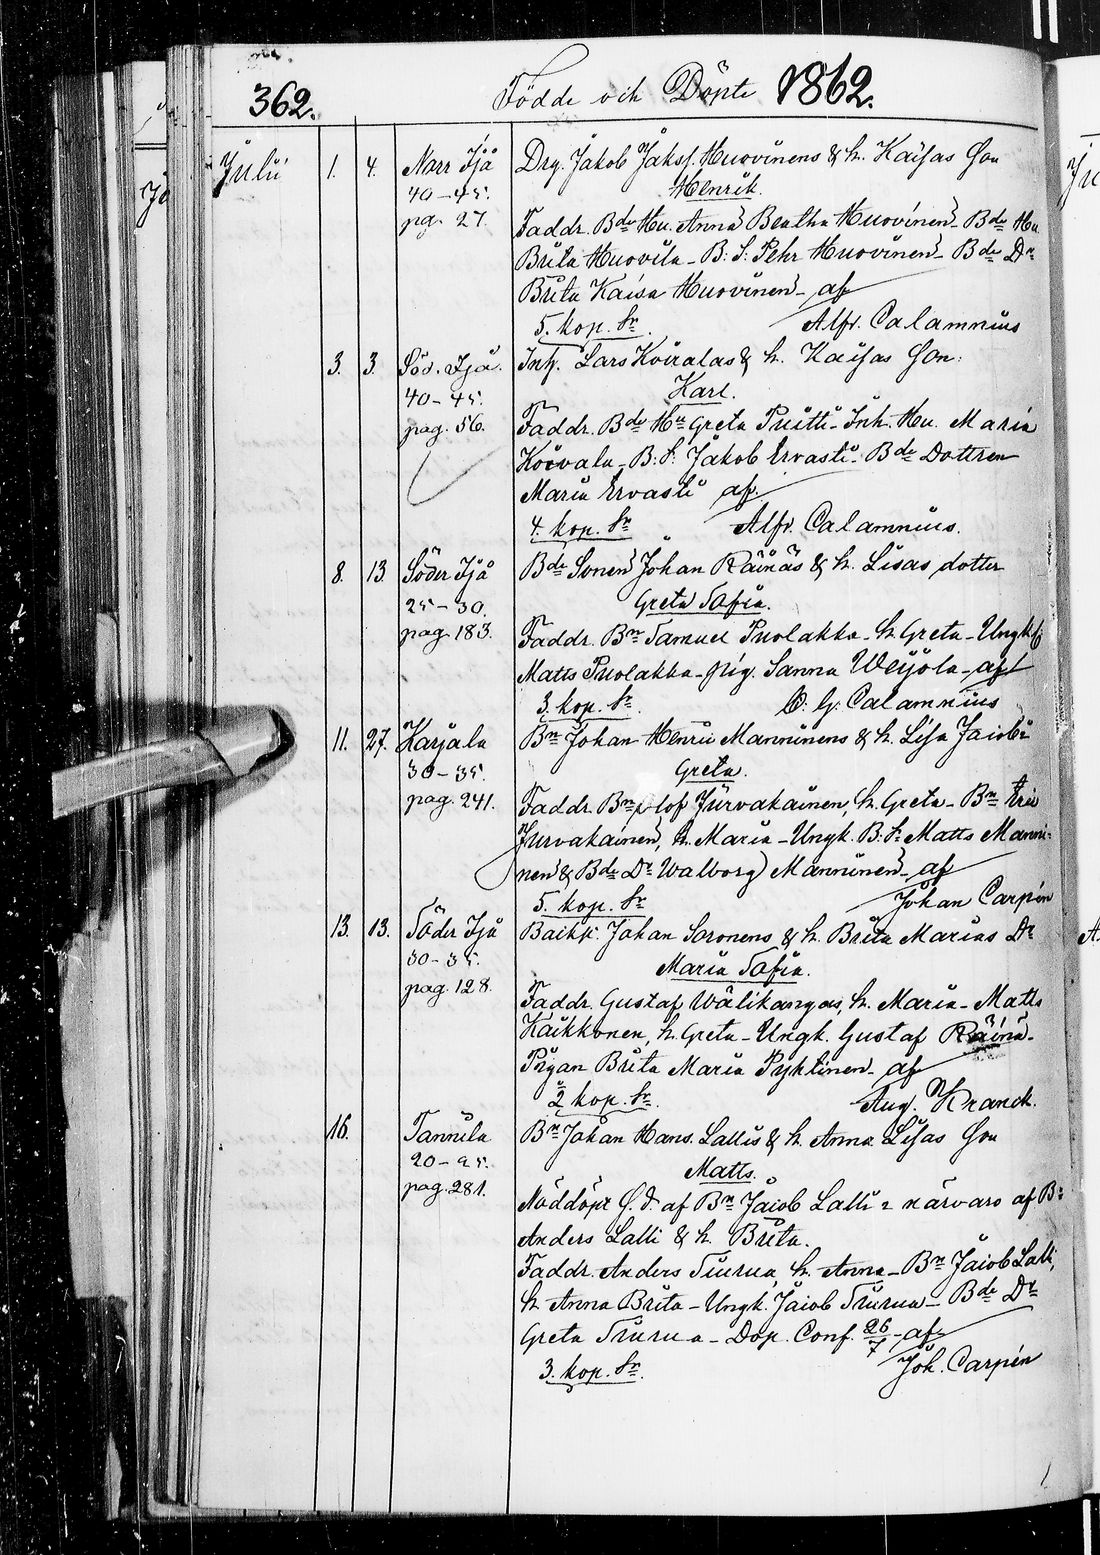 362.
Födde och Döpte 1862.
Julii 1. 4. Norr Ijå Drg. Jakob Jakss. Huovinens & h. Kaisas Son
40-45. Henrik.
pg. 27. Faddr. Bde Hu. Anna Beatha Huovinen - Bde Hu
Brita Huovila - B: S: Pehr Huovinen - Bde Dr
Brita Kaisa Huovinen - af
5. kop. Sr. Alfr. Calamnius
3. 3. Söd. Ijå. Inh. Lars Koivalas & h. Kaisas Son:
40-45. Karl.
pag. 56. Faddr. Bde Hu Greta Puitti - Inh. Hu. Maria
Koivala - B: S: Jakob Ervasti - Bde Dottren
Maria Ervasti af.
4. kop. Sr Alfr. Calamnius.
8. 13. Söder Ijå Bde Sonen Johan Räinäs & h. Lisas dotter
25-30. Greta Sofia.
pag. 183. Faddr. Bn Samuel Puolakka - h. Greta - Ungk
Matts Puolakka - pig. Sanna Weijola - af
3. kop. Sr. C. G. Calamnius
11. 27. Karjala Bn Johan Henric Manninens & h. Lisa Jacobs
30-35. Greta.
pag. 241. Faddr. Bn Olof Jurvakainen, h. Greta - Bn Eric
Jurvakainen, h. Maria - Ungk. B: S: Matts Manni-
nen & Bde Dr Walborg Manninen - af
5. kop. Sr Johan Carpén
13. 13. Söder Ijå Backst. Johan Soronens & h. Brita Marias Dr
30-35. Maria Sofia.
pag. 128. Faddr. Gustaf Wälikangas, h. Maria - Matts
Kaikkonen, h. Greta - Ungk. Gustaf Räinä -
Pigan Brita Maria Pyktinen - af
2 kop. Sr. Aug. Kranck.
16. Tannila Bn Johan Hans. Lallis & h. Anna Lisas Son
20-25. Matts.
pag. 281. Nöddöpt S. d. af Bn Jacob Lalli i närvaro af B:
Anders Lalli & h. Brita.
Faddr. Anders Tiurua, h. Anna - Bn Jacob Lalli,
h. Anna Brita - Ungk. Jacob Tiurua - Bde Dr
Greta Tiurua - Dop. Conf. 26/7 - af
3. kop. Sr. Joh. Carpén